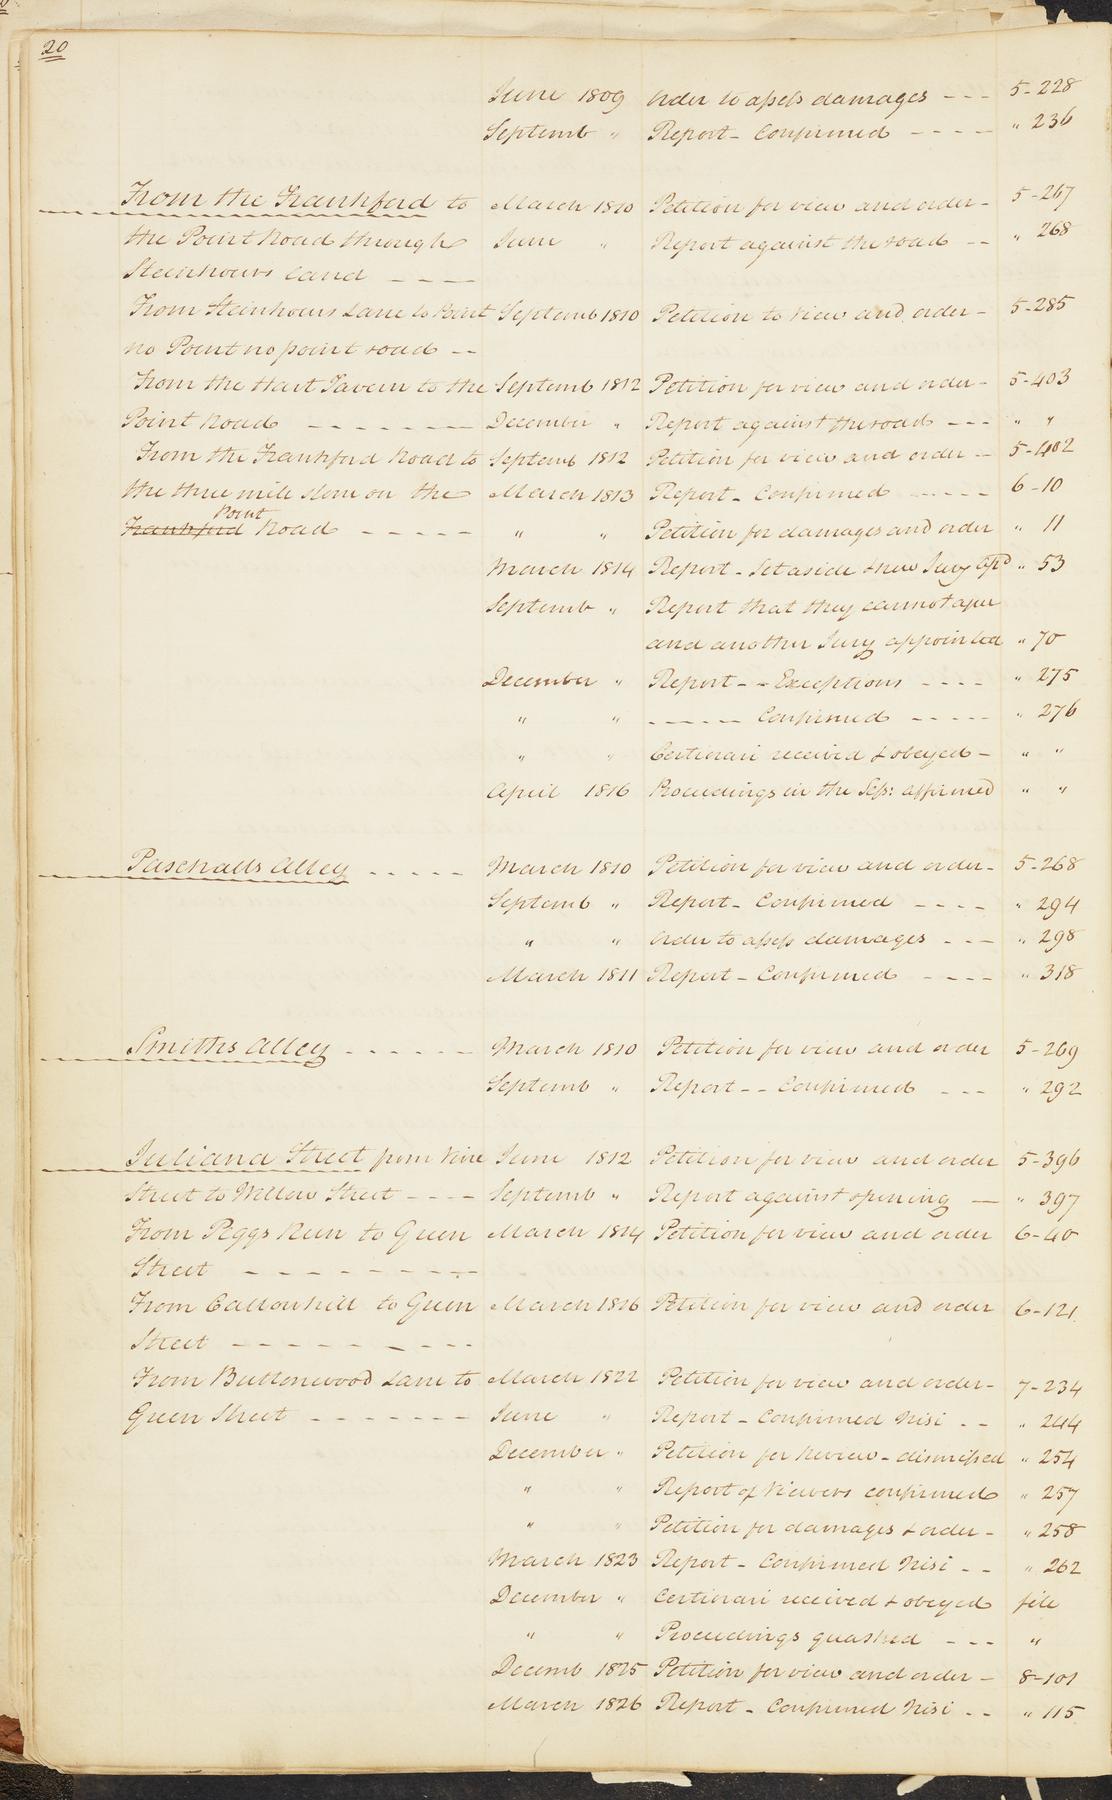 20
June 1809 Order to assess damages --- 5-228
Septemb " Report - Confirmed ---- " 236
From the Frankford to March 1810 Petition for view and order- 5-267
the Point Road through June " Report against the road -- " 268
Steinhours land ----
From Steinhours Lane to Point Septemb 1810 Petition to view and order- 5-285
no Point no point road --
From the Hart Tavern to the Septemb 1812 Petition for view and order- 5-403
Point Road ------- December " Report against the road --- " "
From the Frankford Road to Septemb 1812 Petition for view and order- 5-402
the three mile stone on the March 1813 Report - Confirmed ----- 6-10
Point
Frankford Road ----- " " Petition for damages and order " 11
March 1814 Report - Set aside & new Jury apd " 53
Septemb " Report that they cannot agree
and another Jury appointed " 70
December " Report -- Exceptions ---- " 275
" " ----- Confirmed ----- " 276
" " Certiorari received & obeyed - " "
April 1816 Proceedings in the Sess: affirmed " "
Paschalls Alley ----- March 1810 Petition for view and order- 5-268
Septemb " Report - Confirmed ---- " 294
" " Order to assess damages --- " 298
March 1811 Report - Confirmed ---- " 318
Smiths Alley ------ March 1810 Petition for view and order 5-269
Septemb " Report -- Confirmed --- " 292
Juliana Street from Vine June 1812 Petition for view and order 5-396
Street to Willow Street ---- Septemb " Report against opening - " 397
From Peggs Run to Green March 1814 Petition for view and order 6-40
Street ---------
From Callowhill to Green March 1816 Petition for view and order 6-121
Street ---------
From Buttonwood Lane to March 1822 Petition for view and order- 7-234
Green Street ------- June " Report - Confirmed Nisi -- " 244
December " Petition for Review - dismissed " 254
" " Report of Viewers confirmed " 257
" " Petition for damages & order - " 258
March 1823 Report - Confirmed Nisi -- " 262
December " Certiorari received & obeyed file
" " Proceedings quashed --- "
Decemb 1825 Petition for view and order - 8-101
March 1826 Report - Confirmed Nisi -- " 115